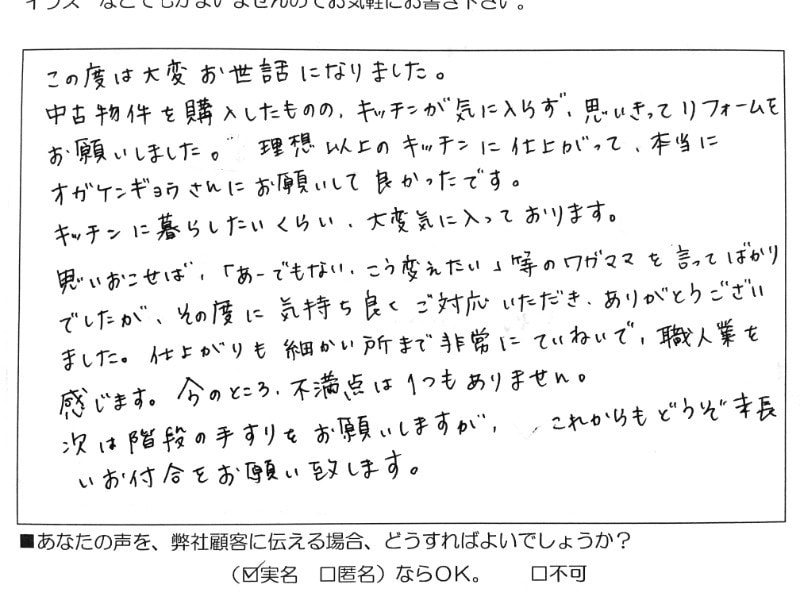 イラストなどでもかまいませんのでお気軽にお書き下さい。
この度は大変お世話になりました。
中古物件を購入したものの、キッチンが気に入らず、思いきってリフォームを
お願いしました。理想以上のキッチンに仕上がって、本当に
オガケンギョウさんにお願いして良かったです。
キッチンに暮らしたいくらい、大変気に入っております。
思いおこせば、「あーでもない、こう変えたい」等のワガママを言ってばかり
でしたが、その度に気持ち良くご対応いただき、ありがとうござい
ました。仕上がりも細かい所まで非常にていねいで、職人業を
感じます。今のところ、不満点は1つもありません。
次は階段の手すりをお願いしますが、これからもどうぞ末長
いお付合をお願い致します。
■あなたの声を、弊社顧客に伝える場合、どうすればよいでしょうか？
（☑実名　□匿名）ならOK。　□不可